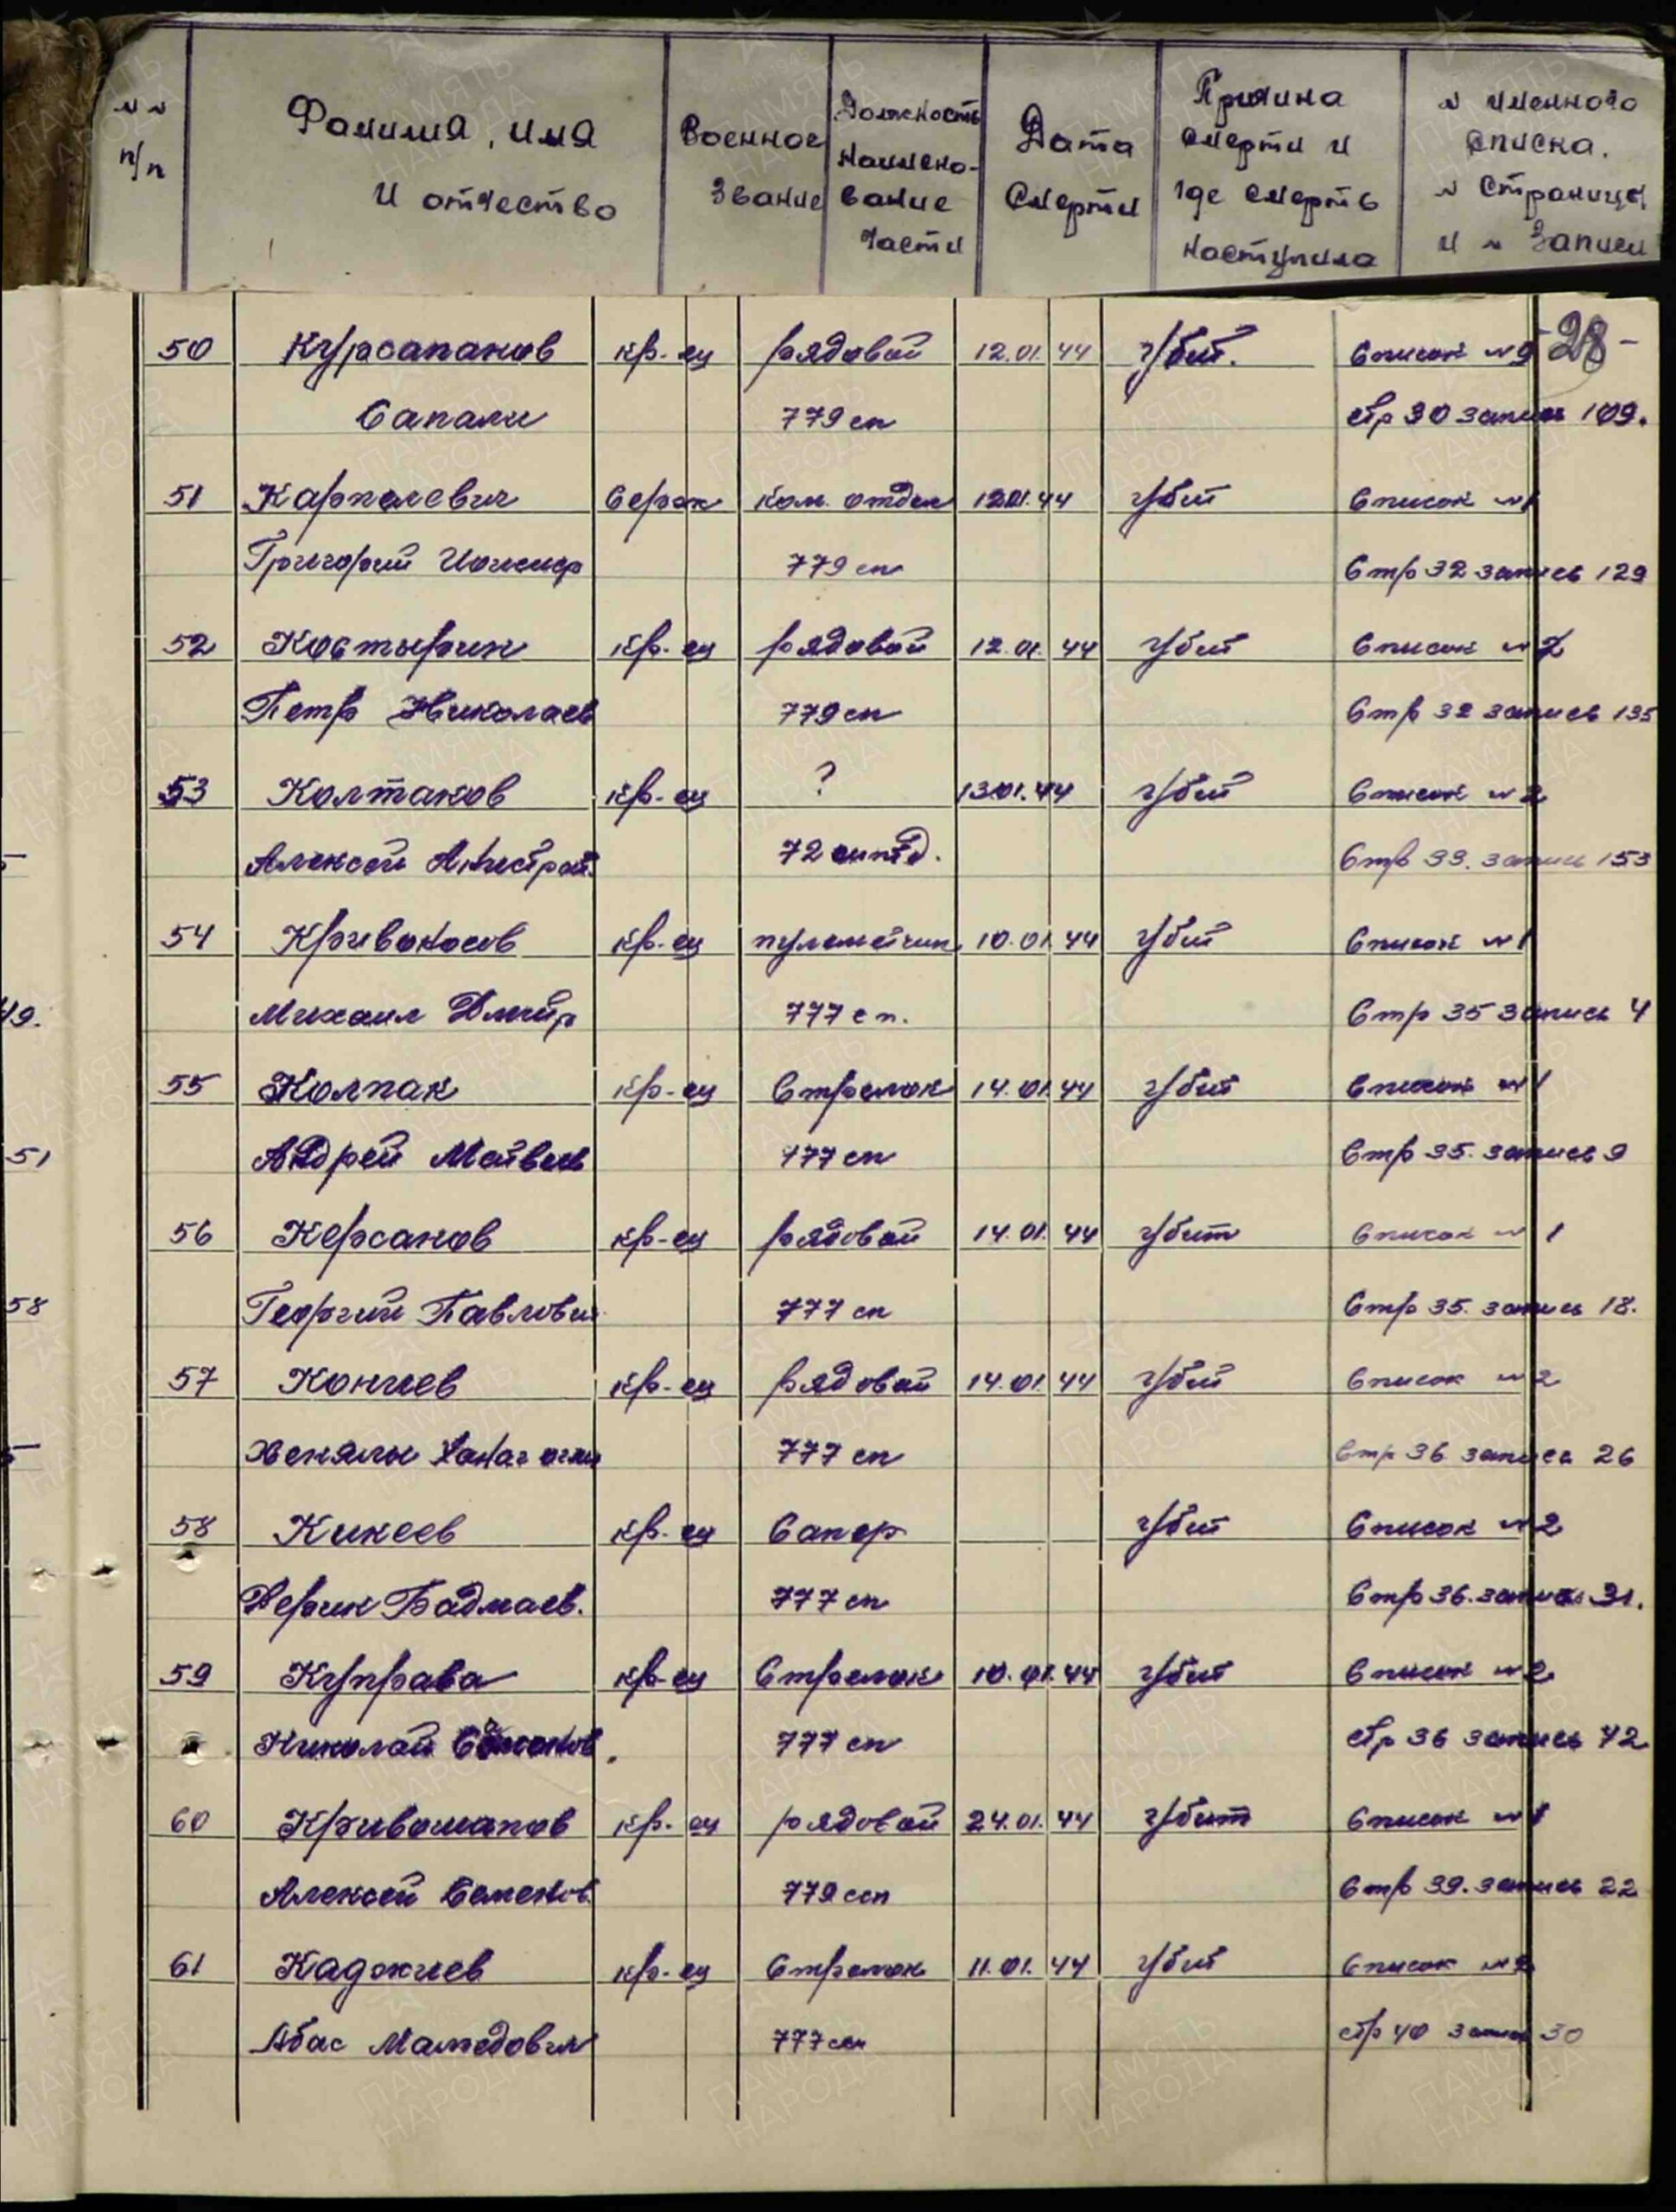 № № п/п
Фамилия, имя и отчество
Военное звание
Должность наименование части
Дата смерти
Причина смерти и где смерть наступила
№ именного списка. № страницы и № записи
-28-
50 Курсапанов кр-ец рядовой 12.01.44 убит. Список №2
Сапали 779 сп стр 30 запись 109.
51 Карпалевич Серж Ком. отдел 12.01.44 убит Список №1
Григорий 779 сп Стр 32 запись 129
52 Костырин кр-ец рядовой 12.01.44 убит Список №2
Петр Николаев 779 сп Стр 32 запись 135
53 Колтаков кр-ец ? 13.01.44 убит Список №2
Алексей 72 Стр 33. запись 153
54 Кривоносов кр-ец пулеметчик 10.01.44 убит Список №1
49.
Михаил Дмитр 777 сп. Стр 35 запись 4
55 Колпак кр-ец Стрелок 14.01.44 убит Список №1
51
Андрей Матвеев 777 сп Стр 35. запись 9
56 Керсанов кр-ец рядовой 14.01.44 убит Список №1
58
Георгий Павлович 777 сп Стр 35. запись 18.
57 Кончев кр-ец рядовой 14.01.44 убит Список №2
огли 777 сп Стр 36 запись 26
58 Кикеев кр-ец Сапер убит Список №2
Бадмаев. 777 сп Стр 36. запись 31.
59 Куправа кр-ец Стрелок 10.01.44 убит Список №2
Николай 777 сп стр 36 запись 42
60 Кривошапов кр-ец рядовой 24.01.44 убит Список №1
Алексей Семенов. 779 ссп Стр 39. запись 22
61 Каджиев кр-ец Стрелок 11.01.44 убит Список №2
Абас Мамедович 777 сп стр 40 запись 30